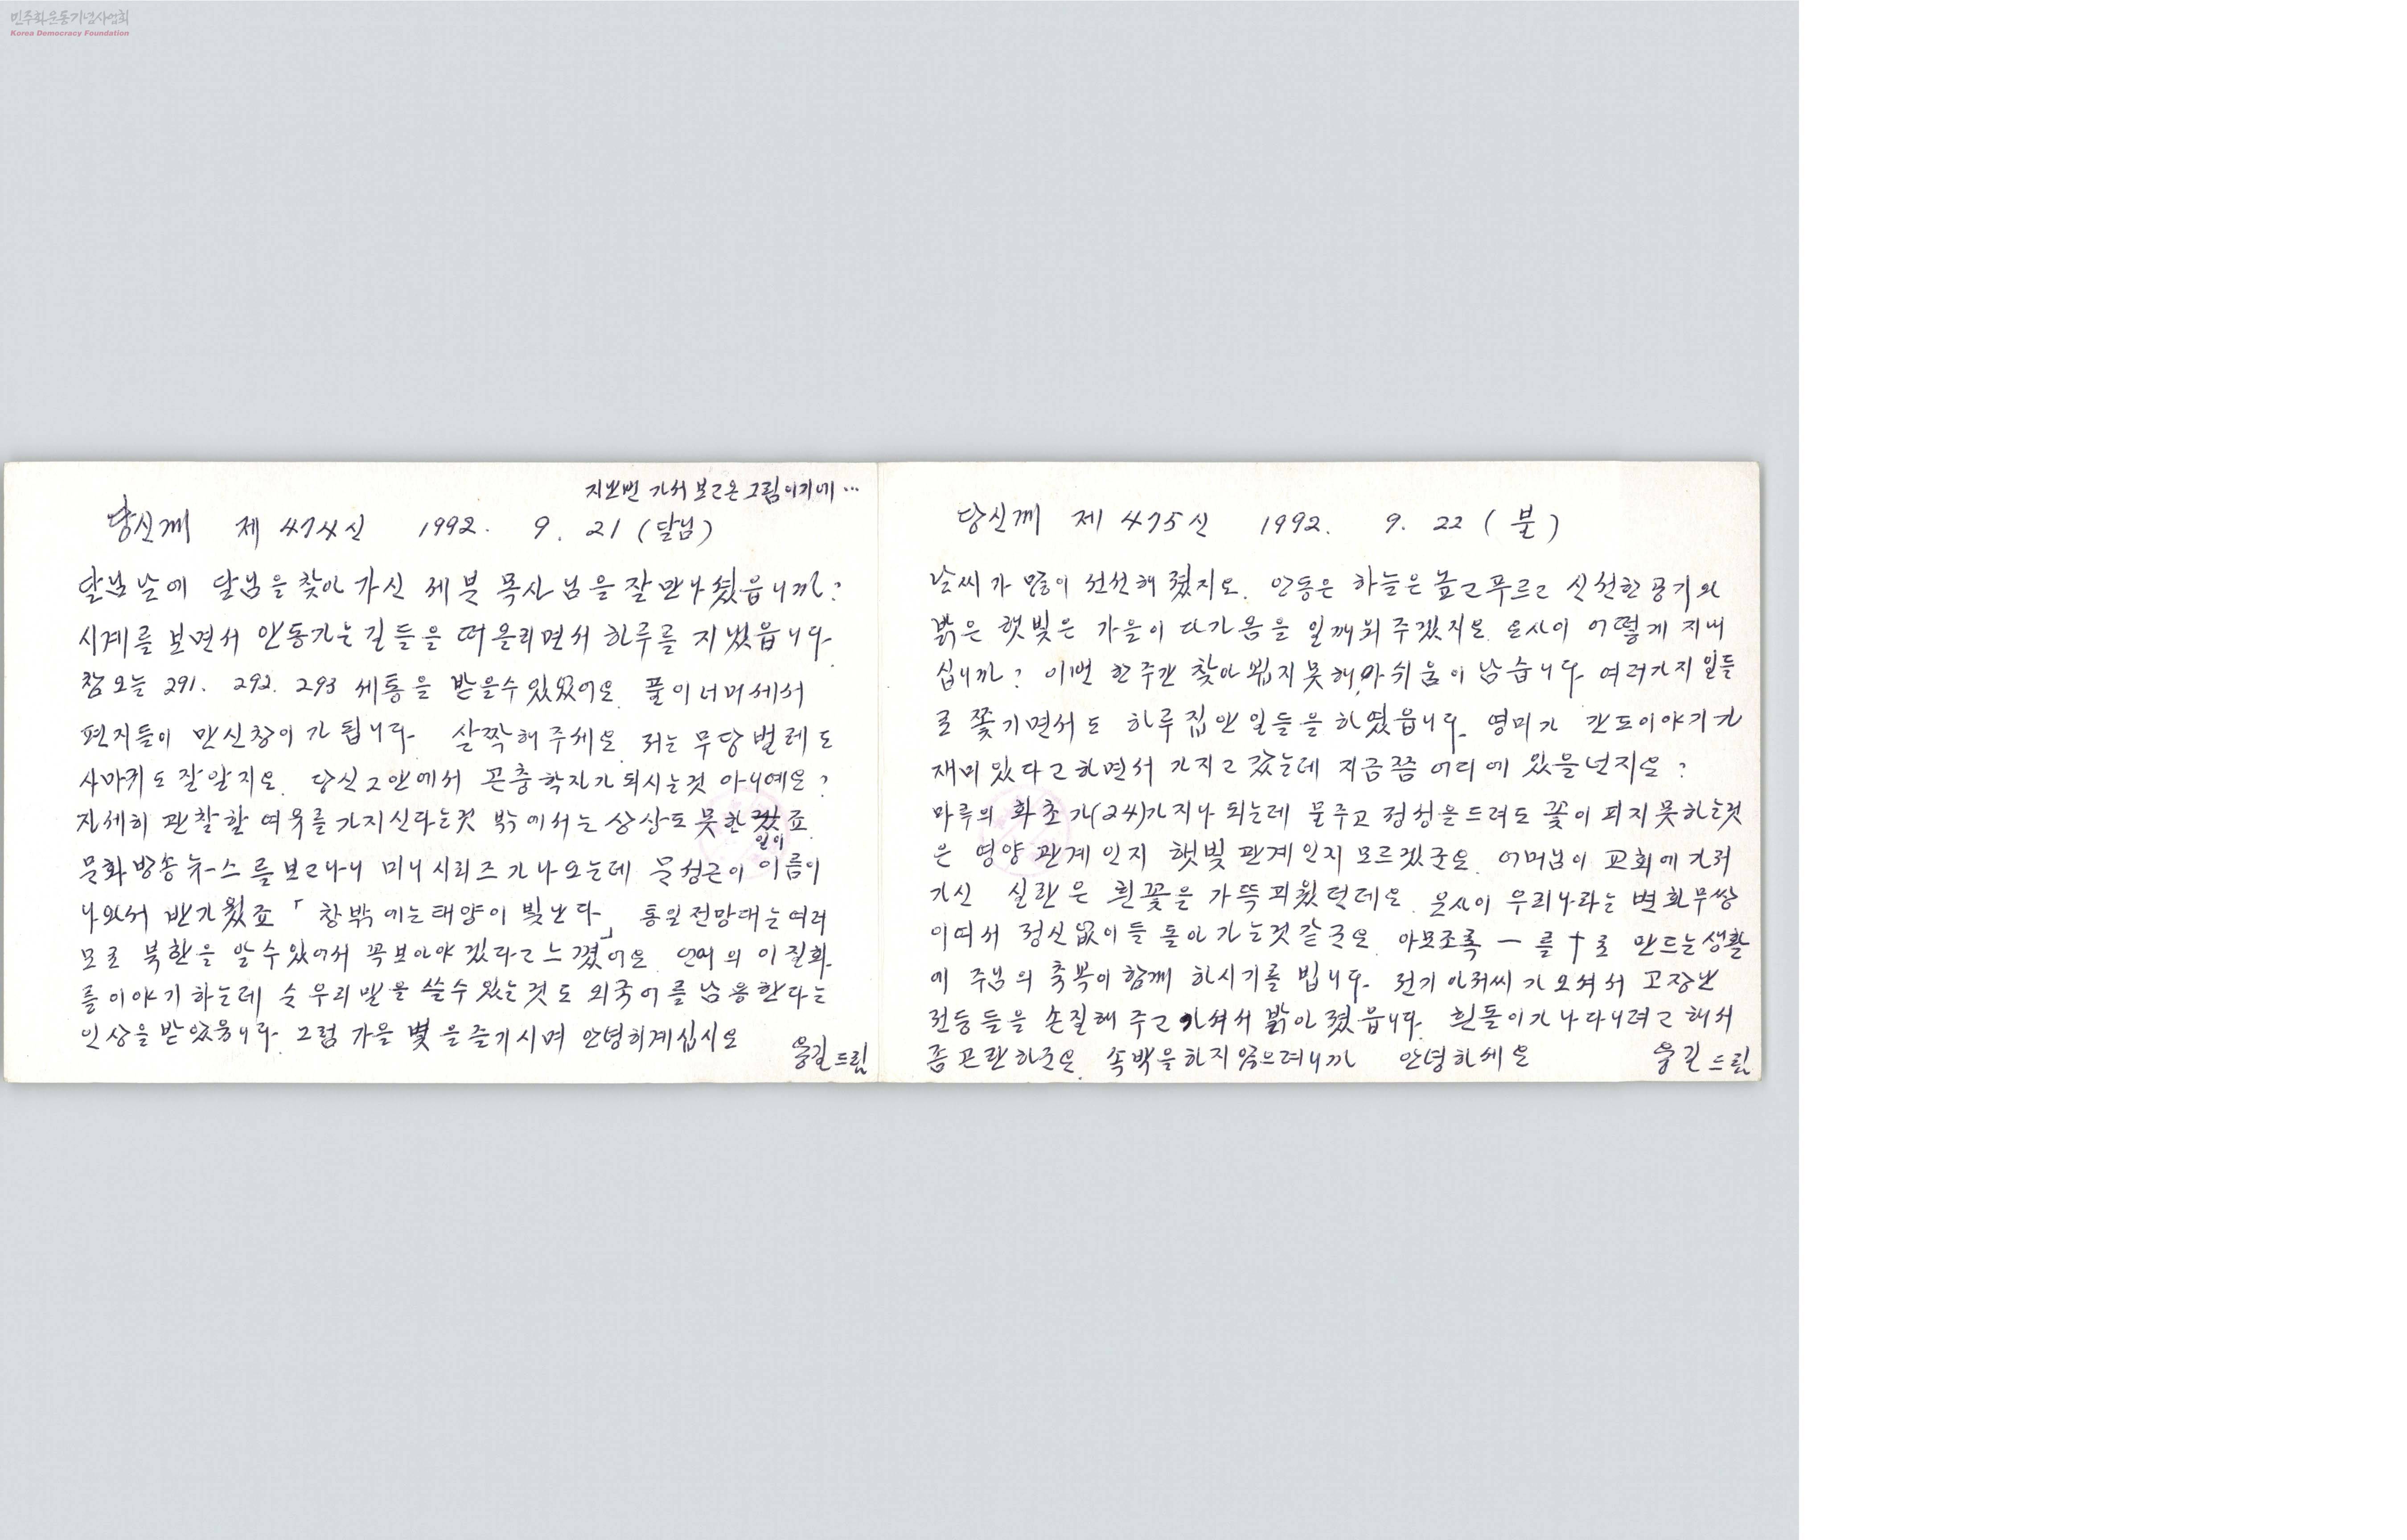 민주화운동기념사업회
Korea Democracy Foundation
지난번 가서 보고온 그림이기에 …
당신께 제 474신 1992. 9. 21 (달님)
달님날에 달님을 찾아 가신 세분 목사님을 잘 만나셨읍니까?
시계를 보면서 안동가는 길들을 떠올리면서 하루를 지냈읍니다.
참 오늘 291. 292. 293 세통을 받을수 있었어요. 풀이 너머 세서
편지들이 만신창이가 됩니다. 살짝 해 주세요. 저는 무당벌레도
사마귀도 잘 알지요. 당신 그안에서 곤충학자가 되시는것 아니예요?
자세히 관찰할 여유를 가지신다는것 밖에서는 상상도 못한 일이죠.
문화방송 뉴-스를 보고나니 미니 시리즈가 나오는데 문성근이 이름이
나와서 반가웠죠 「창밖에는 태양이 빛난다」 통일전망대는 여러
모로 북한을 알수있어서 꼭 보아야 겠다고 느꼈어요. 언어의 이질화
를 이야기 하는데 순 우리말을 쓸수 있는것도 외국어를 남용한다는
인상을 받았읍니다. 그럼 가을 볓을 즐기시며 안녕히계십시요
용길 드림
당신께 제 475신 1992. 9. 22 (불)
날씨가 많이 선선해 졌지요. 안동은 하늘은 높고 푸르고 신선한 공기와
밝은 햇빛은 가을이 다가옴을 일깨워 주겠지요. 은사이 어떻게 지내
십니까? 이번 한주간 찾아 뵙지 못해, 아쉬움이 남습니다. 여러가지 일들
로 쫓기면서도 하루 집안일들을 하였읍니다. 영미가 간도이야기가
재미있다고 하면서 가지고 갔는데 지금쯤 어디에 있을넌지요?
마루의 화초가 (24)가지나 되는데 물주고 정성을 드려도 꽃이 피지 못하는것
은 영양 관계인지 햇빛 관계인지 모르겠군요. 어머님이 교회에 가져
가신 실란은 흰꽃을 가뜩 피웠던데요. 은사이 우리나라는 변화무쌍
이여서 정신없이들 돌아가는것 같군요. 아모조록 ㅡ를 †로 만드는 생활
에 주님의 축복이 함께 하시기를 빕니다. 전기 아저씨가 오셔서 고장난
전등들을 손질해 주고 가셔서 밝아졌읍니다. 흰돌이가 나다니려고 해서
좀 곤란하군요. 속박을 하지 않으려니까 안녕하세요
용길 드림